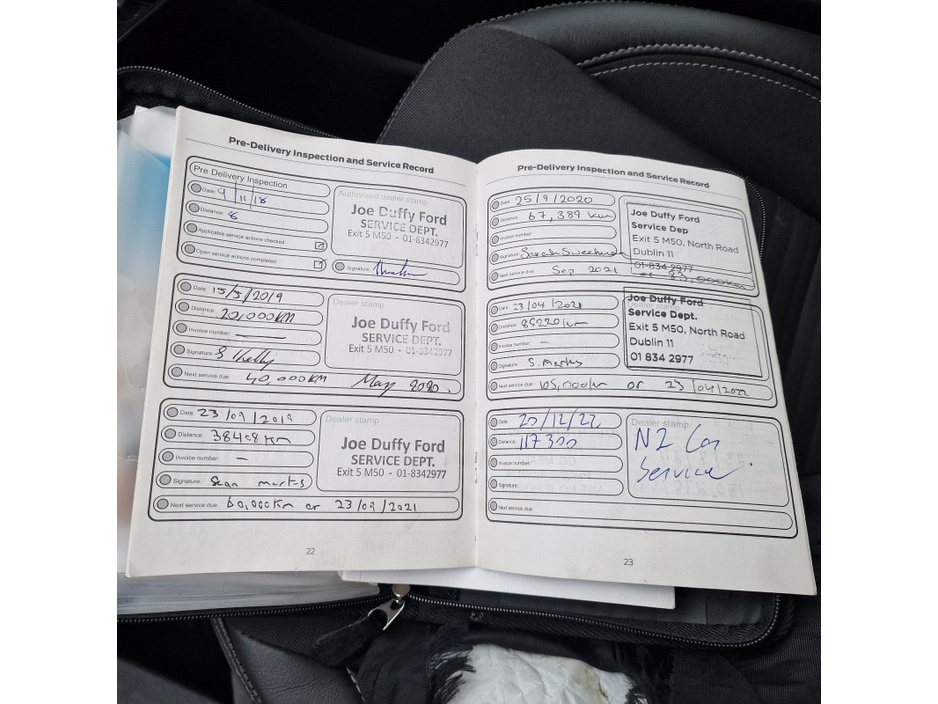 Pre-Delivery Inspection and Service Record
Pre Delivery Inspection
Date: 9/11/18
Distance: 8
Applicable service actions checked
Open service actions completed
Authorised dealer stamp
Joe Duffy Ford
SERVICE DEPT.
Exit 5 M50 - 01-8342977
Signature:
Date: 15/5/2019
Distance: 20,000KM
Invoice number: —
Signature: S Kelly
Next service due: 40,000KM May 2020
Dealer stamp
Joe Duffy Ford
SERVICE DEPT.
Exit 5 M50 - 01-8342977
Date: 23/09/2019
Distance: 38408 km
Invoice number: —
Signature: Sean marks
Next service due: 60,000km or 23/09/2021
Dealer stamp
Joe Duffy Ford
SERVICE DEPT.
Exit 5 M50 - 01-8342977
22
Pre-Delivery Inspection and Service Record
Date: 25/9/2020
Distance: 67,389 km
Invoice number:
Signature: Sarah
Next service due: Sep 2021
Joe Duffy Ford
Service Dep
Exit 5 M50, North Road
Dublin 11
01-834 2977
Date: 23/04/2021
Distance: 85220km
Invoice number: -
Signature: S. marks
Next service due: 105,000km or 23/04/2022
Joe Duffy Ford
Service Dept.
Exit 5 M50, North Road
Dublin 11
01 834 2977
Date: 20/12/22
Distance: 117300
Invoice number:
Signature:
Next service due:
Dealer stamp
N2 Car
Service
23